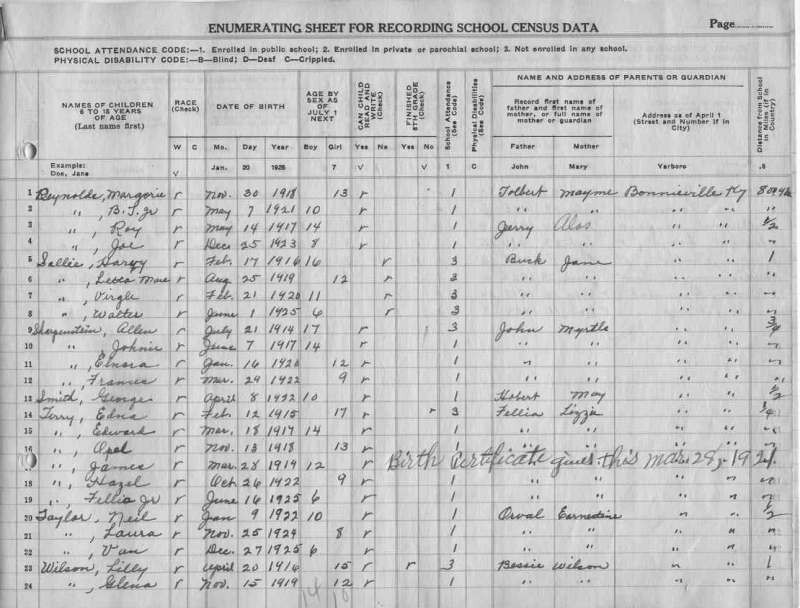 ENUMERATING SHEET FOR RECORDING SCHOOL CENSUS DATA Page
SCHOOL ATTENDANCE CODE:—1. Enrolled in public school; 2. Enrolled in private or parochial school; 3. Not enrolled in any school.
PHYSICAL DISABILITY CODE:—B—Blind; D—Deaf C—Crippled.
NAME AND ADDRESS OF PARENTS OR GUARDIAN
NAMES OF CHILDREN 6 TO 18 YEARS OF AGE (Last name first) RACE (Check) DATE OF BIRTH AGE BY SEX AS OF JULY 1 NEXT CAN CHILD READ AND WRITE (Check) FINISHED 8TH GRADE (Check) School Attendance (See Code) Physical Disabilities (See Code) Record first name of father and first name of mother, or full name of mother or guardian Address as of April 1 (Street and Number if in City) Distance from School in Miles (if in Country)
W C Mo. Day Year Boy Girl Yes No Yes No Father Mother
Example: Doe, Jane V Jan. 20 1925 7 V V 1 C John Mary Yerboro .5
1 Reynolds, Margorie r Nov. 30 1918 13 r 1 Tolbert Mayme Bonnieville Ky
2 " , B.T. Jr r May 7 1921 10 r 1 " " " "
3 " , Roy r May 14 1917 14 r 1 Jerry " " 1/2
4 " , Joe r Dec 25 1923 8 r 1 " " " " "
5 Sallie, Harvy r Feb. 17 1916 16 r 3 Buck Jane " " 1
6 " , Letta Mae r Aug 25 1919 12 r 3 " " " " "
7 " , Virgle r Feb. 21 1920 11 r 3 " " " " "
8 " , Walter r June 1 1925 6 r 3 " " " " "
9 Allen r July 21 1914 17 r 3 John Myrtle " " 3/4
10 " Johnie r June 7 1917 14 r 1 " " " " "
11 " , Elnora r Jan. 16 1920 12 r 1 " " " " "
12 " , Frances r Mar. 29 1922 9 r 1 " " " " "
13 Smith, George r April 8 1922 10 r 1 Hobert May " " 1/2
14 Terry, Edna r Feb. 12 1915 17 r r 3 Fellia Lizzie " " 3/4
15 " , Edward r Mar. 18 1917 14 r 1 " " " " "
16 " , Opal r Nov. 13 1918 13 r 1 " " " " "
17 " , James r Mar. 28 1919 12 r Birth Certificate gives this Mar. 28, 1921.
18 " , Hazel r Oct 26 1922 9 r 1 " " " " "
19 " , Fellia Jr r June 16 1925 6 r 1 " " " " "
20 Taylor, Neil r Jan 9 1922 10 r 1 Orval Earnestine " " 1/2
21 " , Laura r Nov. 25 1924 8 r 1 " " " " "
22 " , Van r Dec. 27 1925 6 r 1 " " " " "
23 Wilson, Lilly r April 20 1916 15 r r 3 Bessie Wilson " " 1
24 " , Glena r Nov. 15 1919 12 r 1 " " " " "
14 10